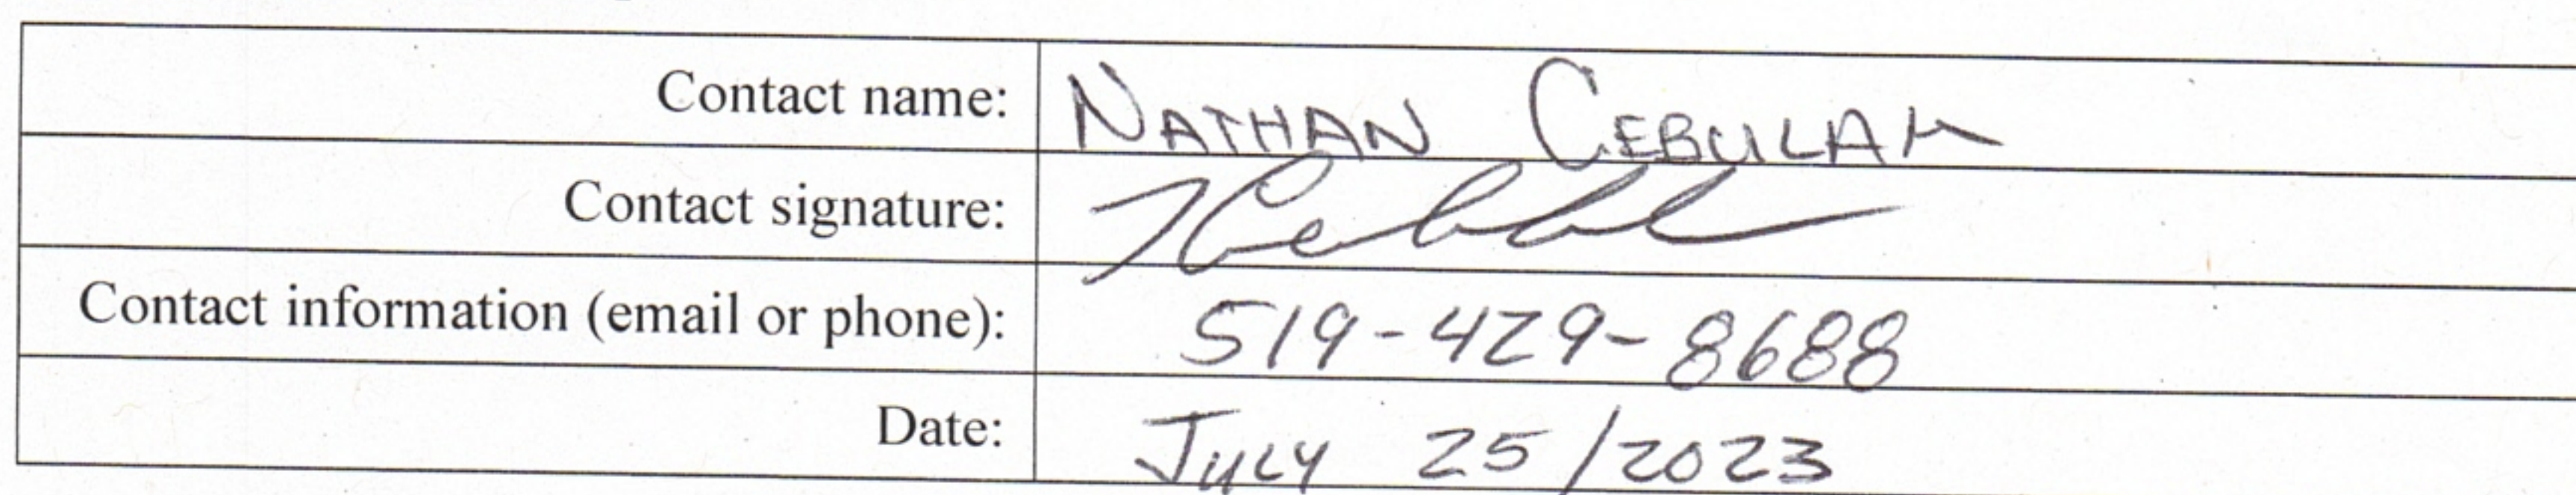 Contact name: NATHAN CEBULAK
Contact signature:
Contact information (email or phone): 519-429-8688
Date: July 25/2023